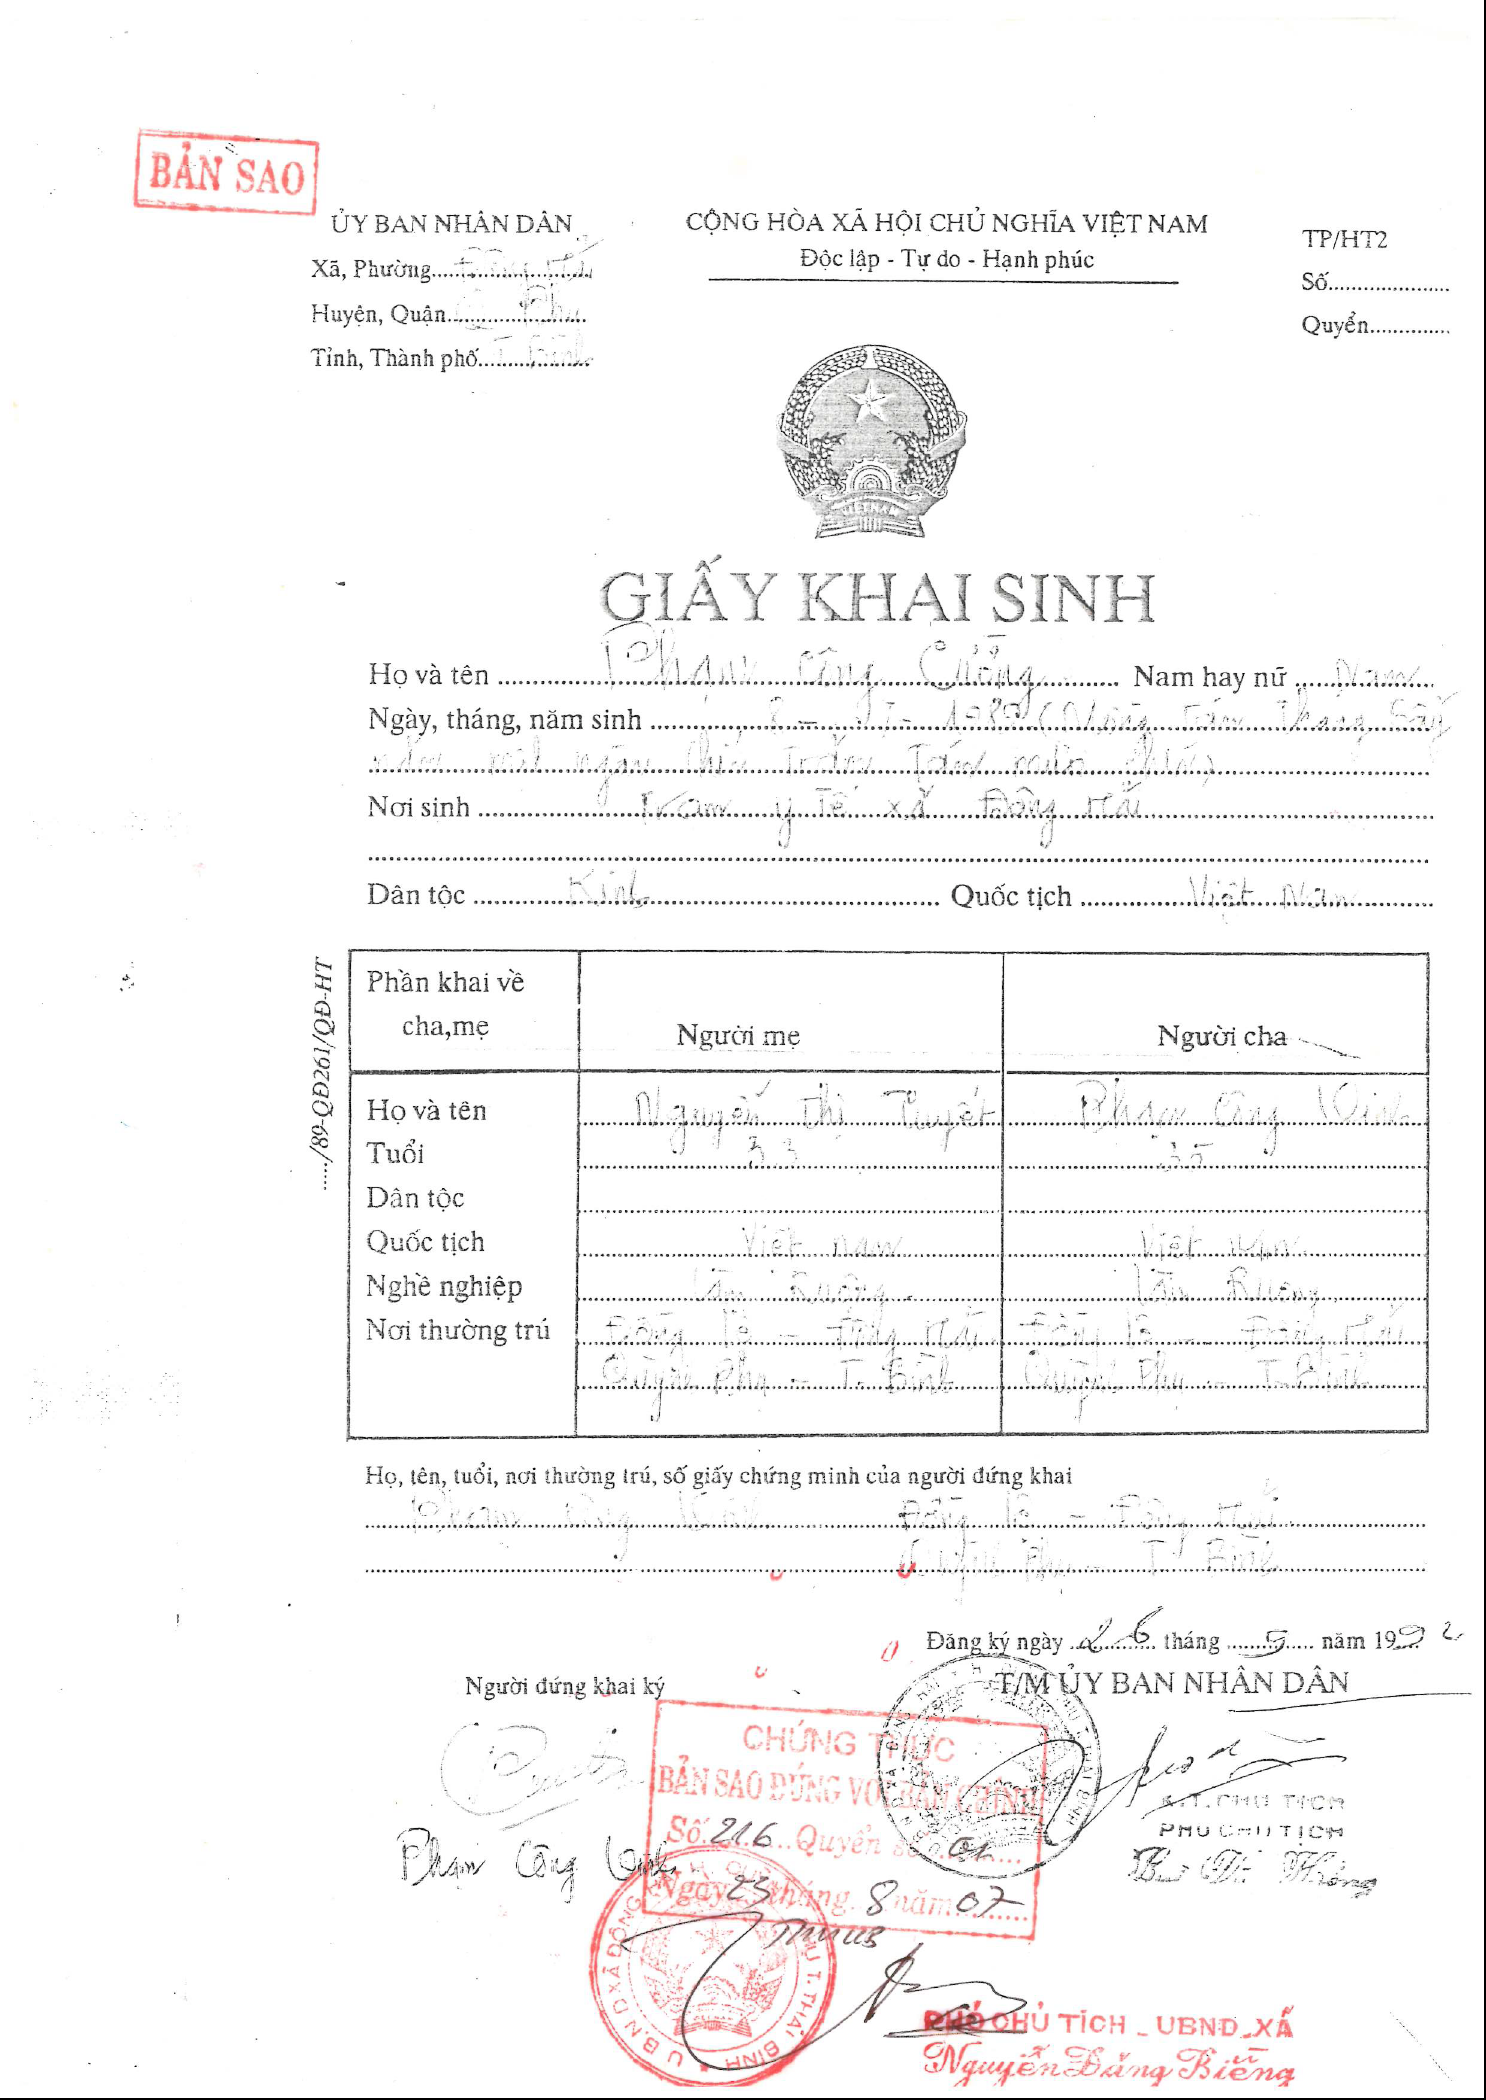 BẢN SAO
ỦY BAN NHÂN DÂN
Xã, Phường....Đông Hải
Huyện, Quận.......Phụ
Tỉnh, Thành phố...T. Bình
CỘNG HÒA XÃ HỘI CHỦ NGHĨA VIỆT NAM
Độc lập - Tự do - Hạnh phúc
TP/HT2
Số......................
Quyển..............
VIỆT NAM
GIẤY KHAI SINH
Họ và tên ........ Phạm Công Cưởng ........ Nam hay nữ ... Nam
Ngày, tháng, năm sinh ........ 8 - 1989 ( tám tháng
năm một ngàn chín trăm tám mươi chín)
Nơi sinh ........ Trạm y tế xã Đông Hải
Dân tộc ........ Kinh ........ Quốc tịch ........ Việt Nam
...../89-QĐ261/QĐ-HT
Phần khai về cha,mẹ Người mẹ Người cha
Họ và tên Nguyễn Thị Tuyết Phạm Công
Tuổi 33 35
Dân tộc
Quốc tịch Việt nam Việt nam
Nghề nghiệp Làm Ruộng Làm Ruộng
Nơi thường trú Đông Hải Đông Hải
Quỳnh Phụ - T. Bình Quỳnh Phụ - T. Bình
Họ, tên, tuổi, nơi thường trú, số giấy chứng minh của người đứng khai
Phạm Công Đông Hải
Quỳnh Phụ - T. Bình
Đăng ký ngày 26 tháng 5 năm 1992
Người đứng khai ký
T/M ỦY BAN NHÂN DÂN
CHỨNG THỰC
BẢN SAO ĐÚNG VỚI BẢN CHÍNH
Số 216 Quyển số 01
Ngày 23 tháng 8 năm 07
K.T. CHỦ TỊCH
PHÓ CHỦ TỊCH
Phạm Công
U.B.N.D XÃ ĐÔNG T. THÁI BÌNH
PHÓ CHỦ TỊCH - UBND XÃ
Nguyễn Đăng Biềng